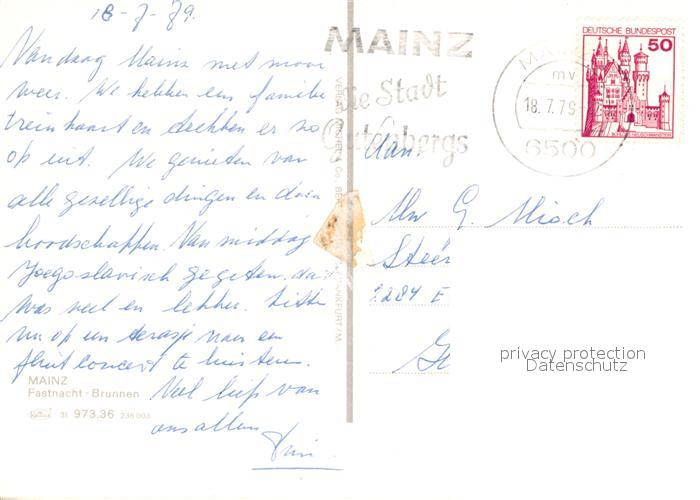 18-7-79.
Vandaag Mainz met mooi
weer. We hebben een familie
treinkaart en trekken er zo
op uit. We genieten van
alle gezellige dingen en doen
boodschappen. Van middag
Joegoslavisch gegeten. dat
was veel en lekker. Zitten
nu op een terasje naar een
fluitconcert te luisteren.
Veel liefs van
ons allen
MAINZ
Fastnacht - Brunnen
31 973.36 236 003
VERLAG & Co. FRANKFURT/M.
MAINZ
die Stadt
Gutenbergs
DEUTSCHE BUNDESPOST
50
18.7.79
mv
6500
Aan:
Mw G. Misch
2284 E
privacy protection
Datenschutz